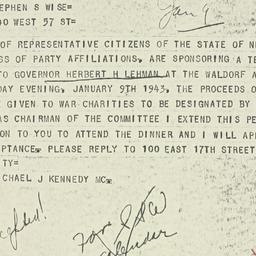 EPHEN S WISE=
40 WEST 57 ST=
Jan 9
OF REPRESENTATIVE CITIZENS OF THE STATE OF NE
SS OF PARTY AFFILIATIONS, ARE SPONSORING A TE
TO GOVERNOR HERBERT H LEHMAN AT THE WALDORF A
DAY EVENING, JANUARY 9TH 1943, THE PROCEEDS O
E GIVEN TO WAR CHARITIES TO BE DESIGNATED BY
AS CHAIRMAN OF THE COMMITTEE I EXTEND THIS PE
ION TO YOU TO ATTEND THE DINNER AND I WILL APP
EPTANCE. PLEASE REPLY TO 100 EAST 17TH STREET
TY=
CHAEL J KENNEDY MC.
For SSW
calendar